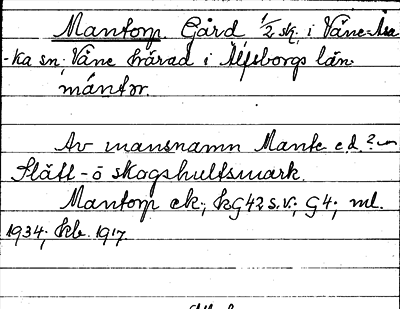 Mantorp. Gård 1/2 sk. i Väne-Åsa
-ka sn; Väne härad i Älfsborgs län.
mántɔr
Av mansnamn Mante e.d.?
Slätt-ö skogshultsmark.
Mantorp ek; kG42 s.v.; G4; ml.
1934; kb. 1917.